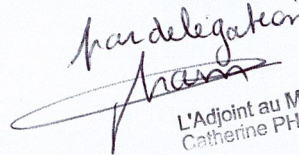 par delegation
L'Adjoint au M
Catherine PH